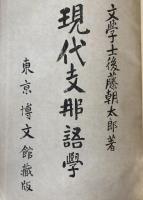 文學士後藤朝太郎著
現代支那語學
東京博文館藏版